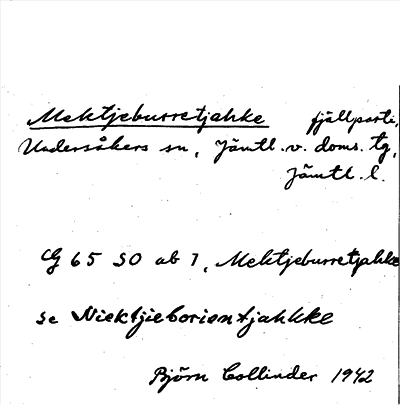 Mektjeburretjahke fjällparti,
Undersåkers sn, Jämtl. v. doms. tg,
Jämtl. l.
G 65 SO ab 1, Mektjeburretjahke
se Niektjieborientjahkke
Björn Collinder 1942